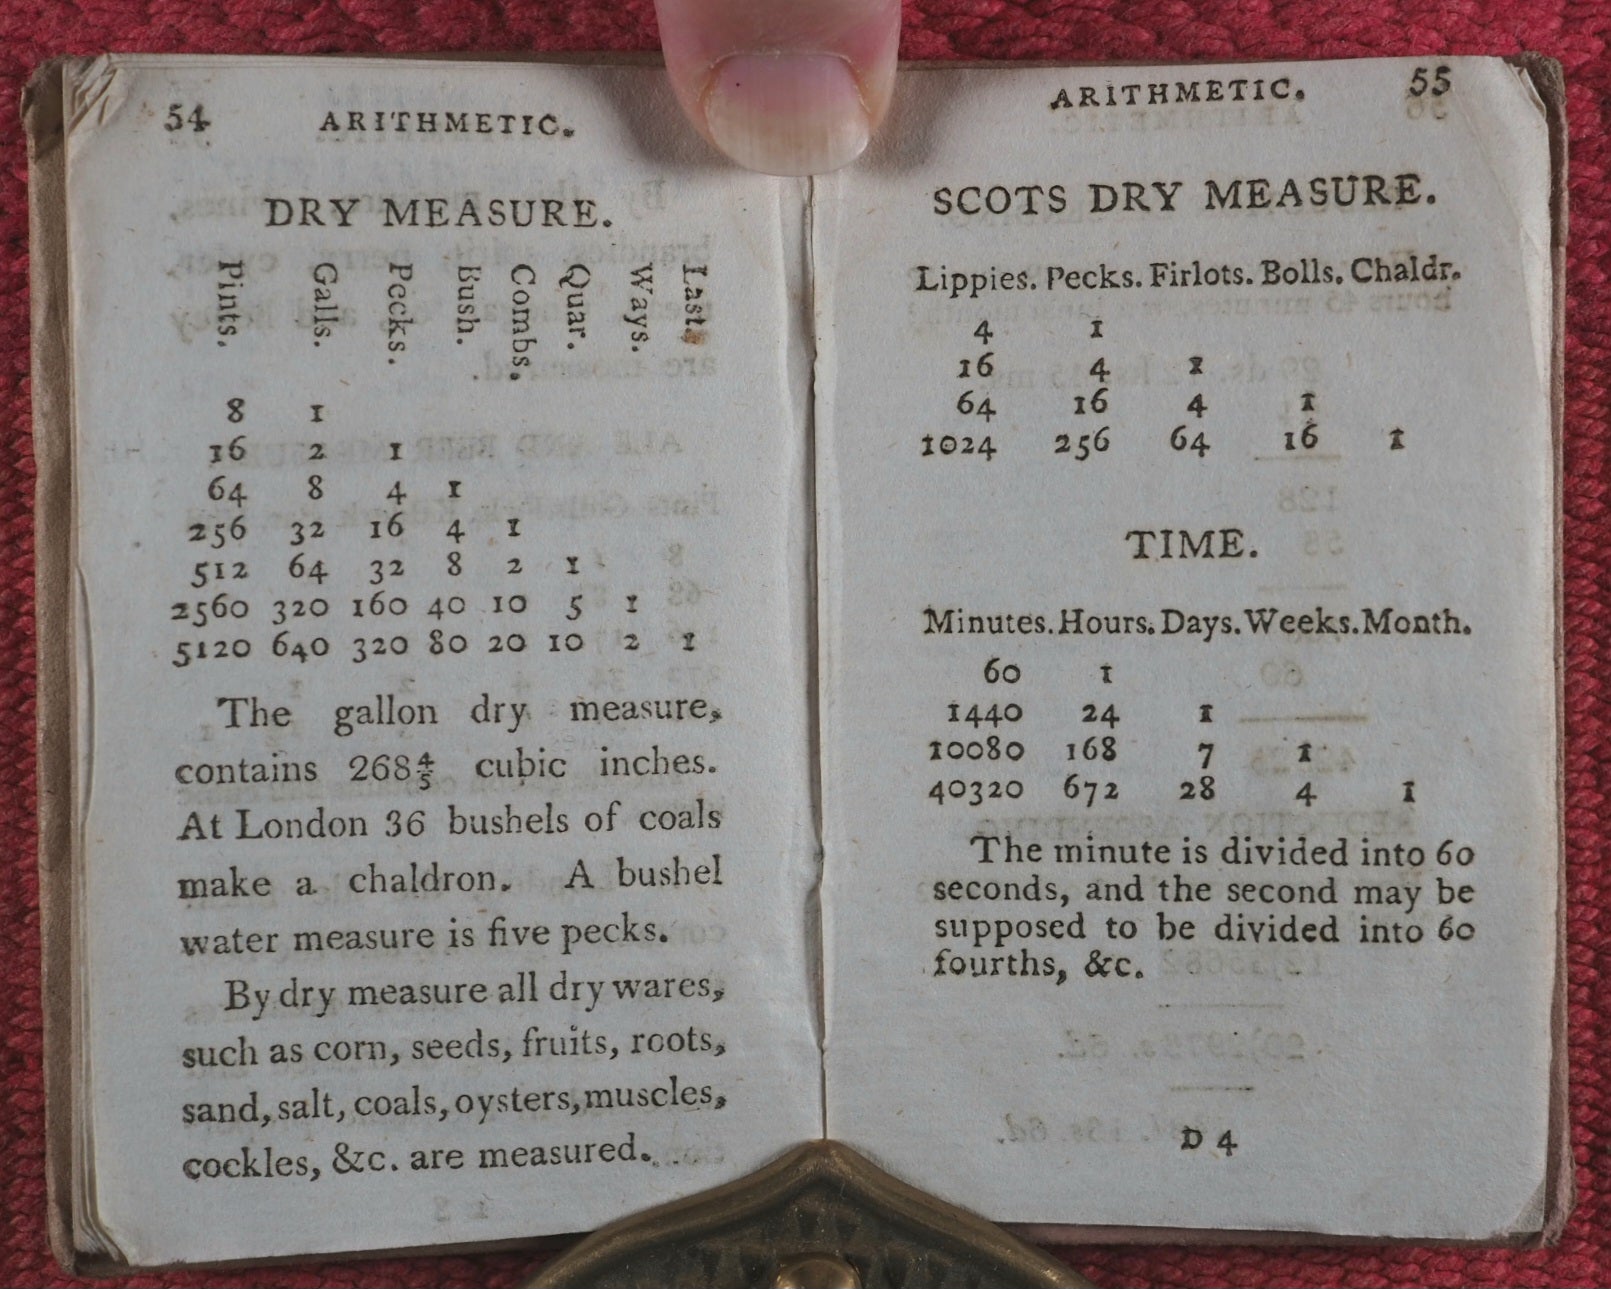 54 ARITHMETIC.
DRY MEASURE.
Pints. Galls. Pecks. Bush. Combs. Quar. Ways. Last.
8 1
16 2 1
64 8 4 1
256 32 16 4 1
512 64 32 8 2 1
2560 320 160 40 10 5 1
5120 640 320 80 20 10 2 1
The gallon dry measure,
contains 268⅘ cubic inches.
At London 36 bushels of coals
make a chaldron. A bushel
water measure is five pecks.
By dry measure all dry wares,
such as corn, seeds, fruits, roots,
sand, salt, coals, oysters, muscles,
cockles, &c. are measured.
ARITHMETIC. 55
SCOTS DRY MEASURE.
Lippies. Pecks. Firlots. Bolls. Chaldr.
4 1
16 4 1
64 16 4 1
1024 256 64 16 1
TIME.
Minutes. Hours. Days. Weeks. Month.
60 1
1440 24 1
10080 168 7 1
40320 672 28 4 1
The minute is divided into 60
seconds, and the second may be
supposed to be divided into 60
fourths, &c.
D 4